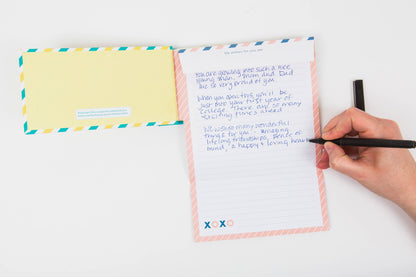 You are growing into such a nice
young man. Mom and Dad
are so very proud of you.
When you open this you'll be
into your first year of
College. There are so many
exciting times ahead
We wish so many wonderful
things for you - Amazing
lifelong friendships, Peace of
mind, a happy & loving heart
XOXO